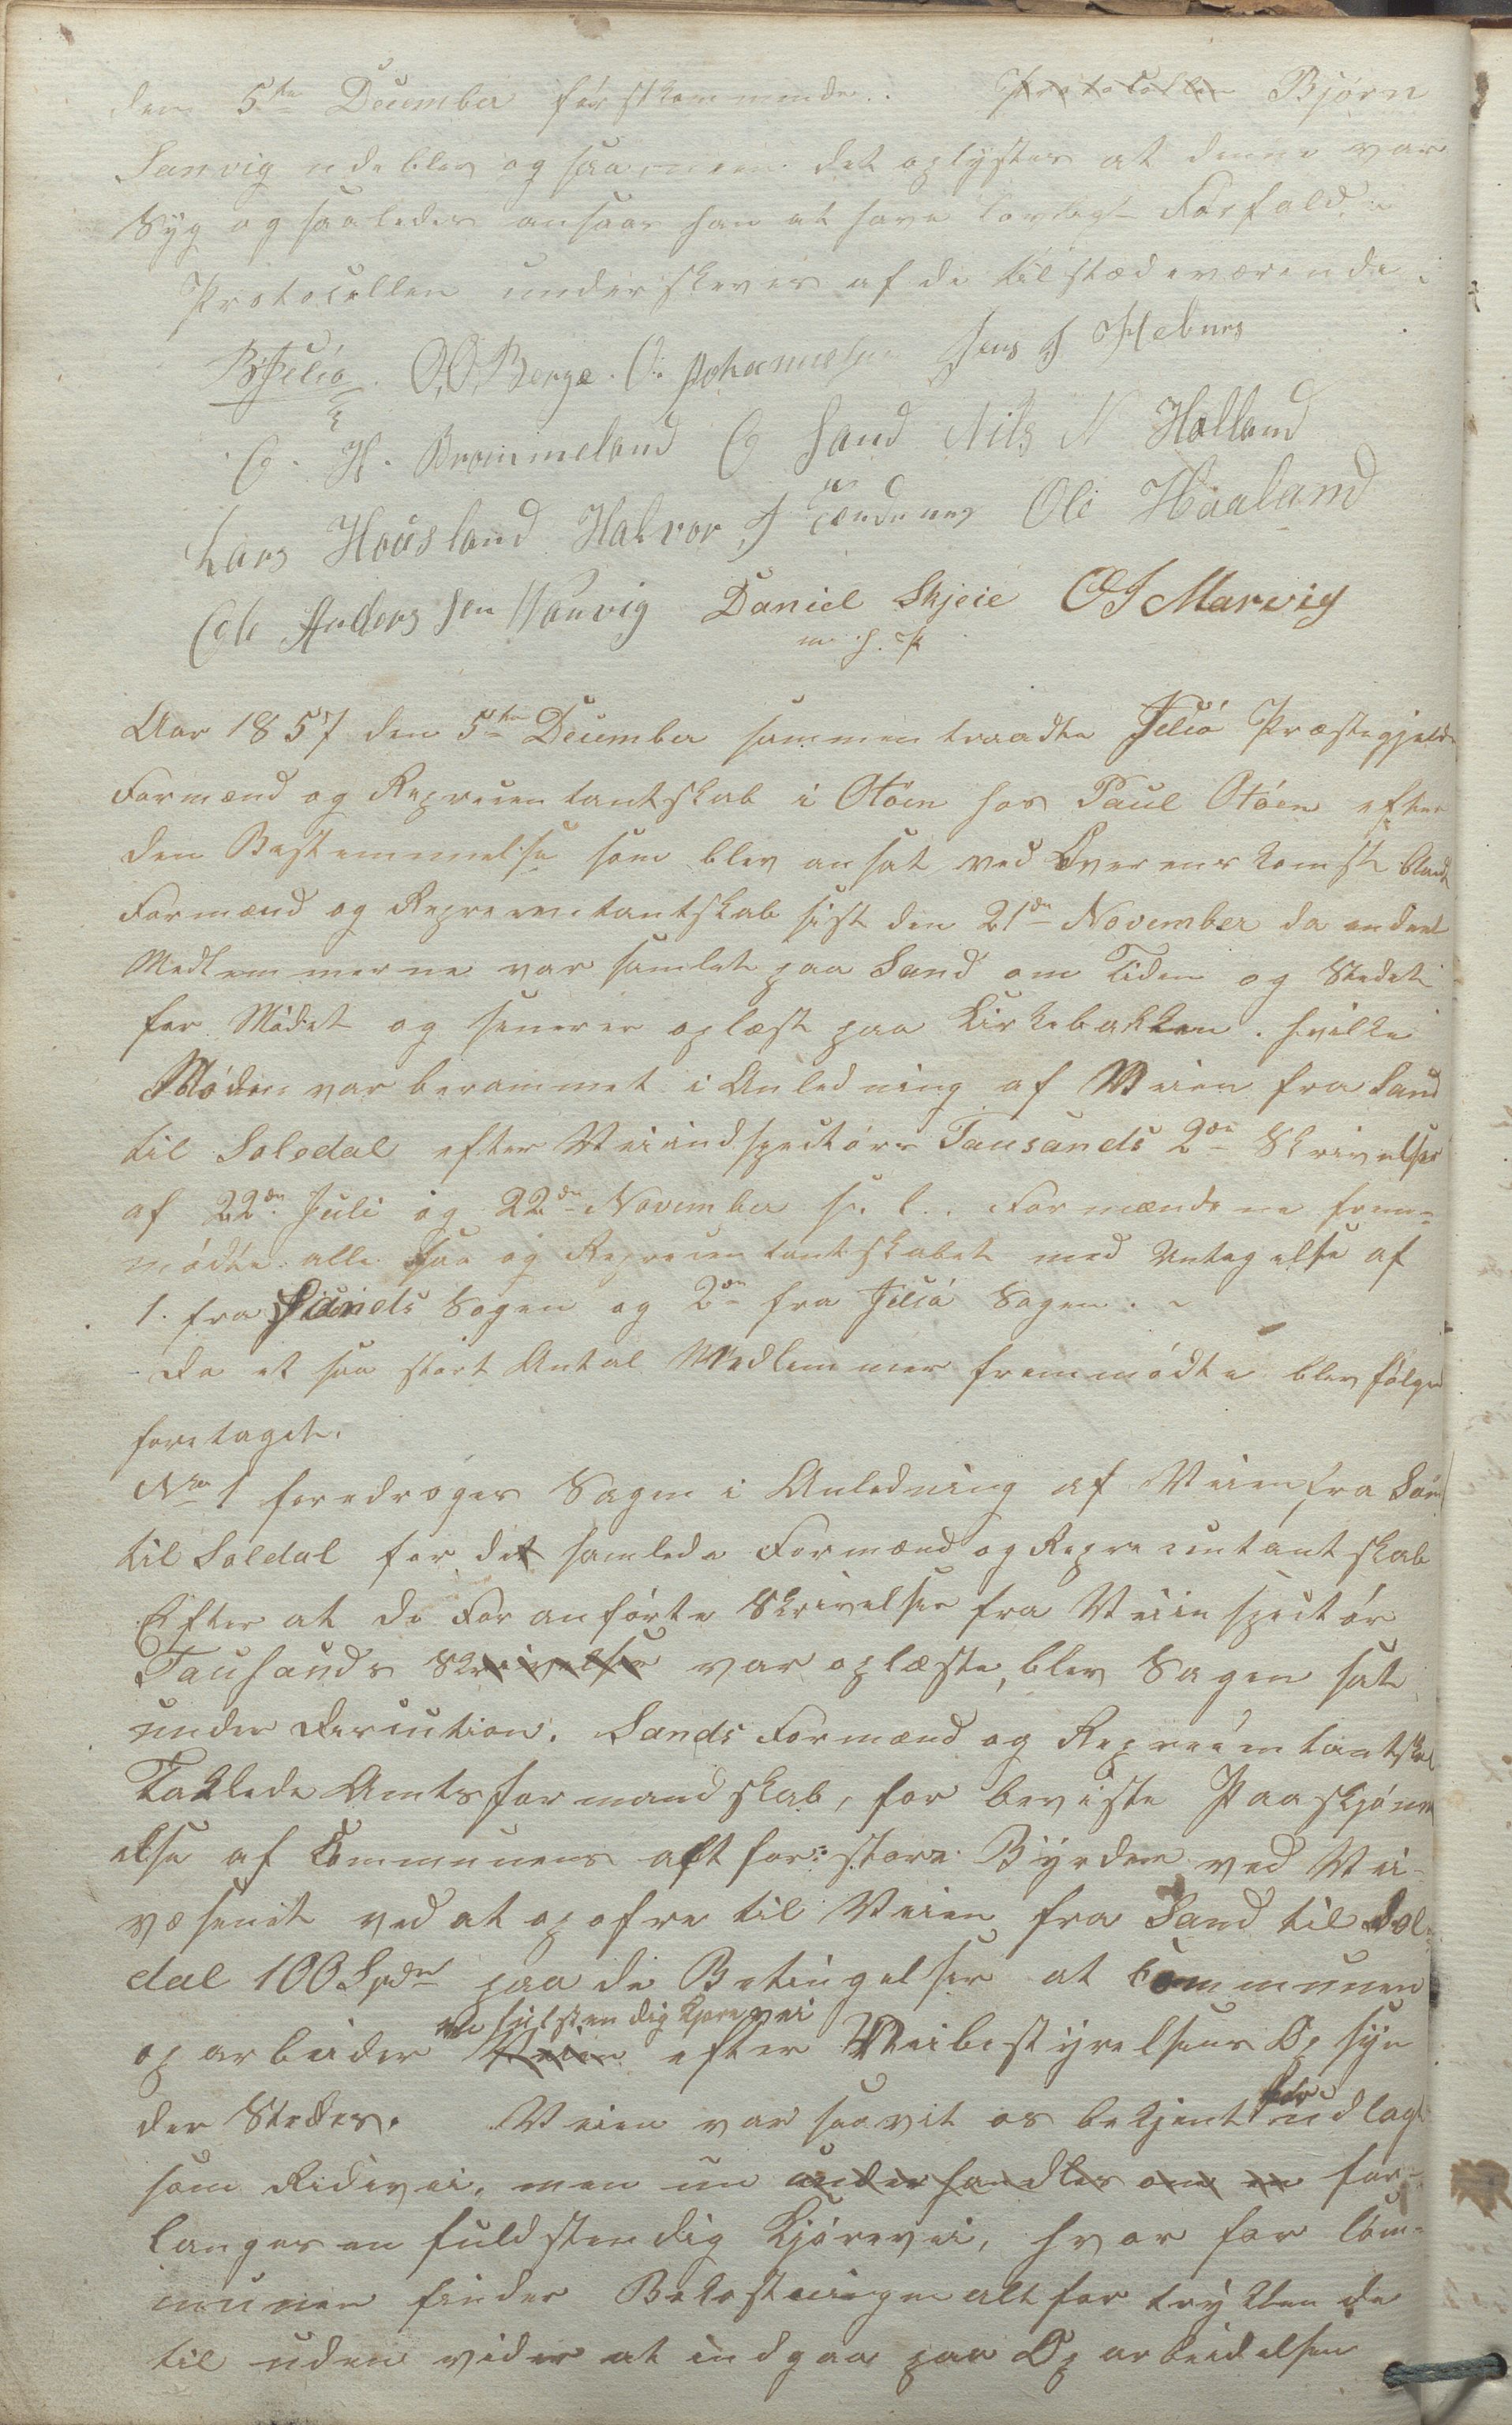 den 5te December førstkommende. Protocollen Bjørn
Sanvig udeblev ogsaa men det oplystes at denne var
Syg og saaledes ansaaes han at have lovligt Forfald.
Protocollen underskreves af de tilstædeværende
B Jelsø. O. O. Berge. O. Johannesen Jens J Hebnes
C. H. Brommeland C Sand Nils N Halland
Lars Housland Halvor J Ole Haaland
Ole Andersen Vanvig Daniel Skjeie O J Marvig
m. h. P
Aar 1857 den 5te December sammentraadte Jelsø Præstegjelds
Formænd og Representantskab i Otøen hos Paul Otøen efter
den Bestemmelse som blev ansat ved Overenskomst blandt
Formænd og Representantskab sist den 21de November da endeel
Medlemmerne var samlet paa Sand om Tiden og Stedet
for Mødet og senere oplæst paa Kirkebakken. hvilke
Møde var berammet i Anledning af Veien fra Sand
til Soledal efter Veiindspectørs Tausands 2de Skrivelser
af 22de Juli og 22de November s. l.. Formændene frem=
mødte alle saa og Representantskabet med Untagelse af
1. fra Sands Sogen og 2de fra Jelsø Sogen. ~
Da et saa stort Antal Medlemmer fremmødte blev følgende
foretaget.
No 1 foredroges Sagen i Anledning af Veien fra Sand
til Soldal for det samlede Formænd og Representantskab
Efter at de Foranførte Skrivelser fra Veiinspectør
Tauhands Skrivelser var oplæste, blev Sagen sat
under Discution. Sands Formænd og Representantskab
Taklede Amtsformandskab, for beviste Paaskjønn
else af Communens alt for store Byrder ved Vei-
væsenet ved at opofre til Veien fra Sand til Sol=
dal 100 Spdr paa de Betingelser at Communen
en fulstendig Kjørevei
oparbeider Veien efter Veibestyrelsens Opsyn
der Stedes. Veien var saavit os bekjent før udlagt
som Ridevei, men nu underhandles om en for=
langes en fuldstendig Kjørevei, hvorfor Com=
munen finder Bekostningen alt for trykkende
til uden vider at indgaa paa Oparbeidelsen